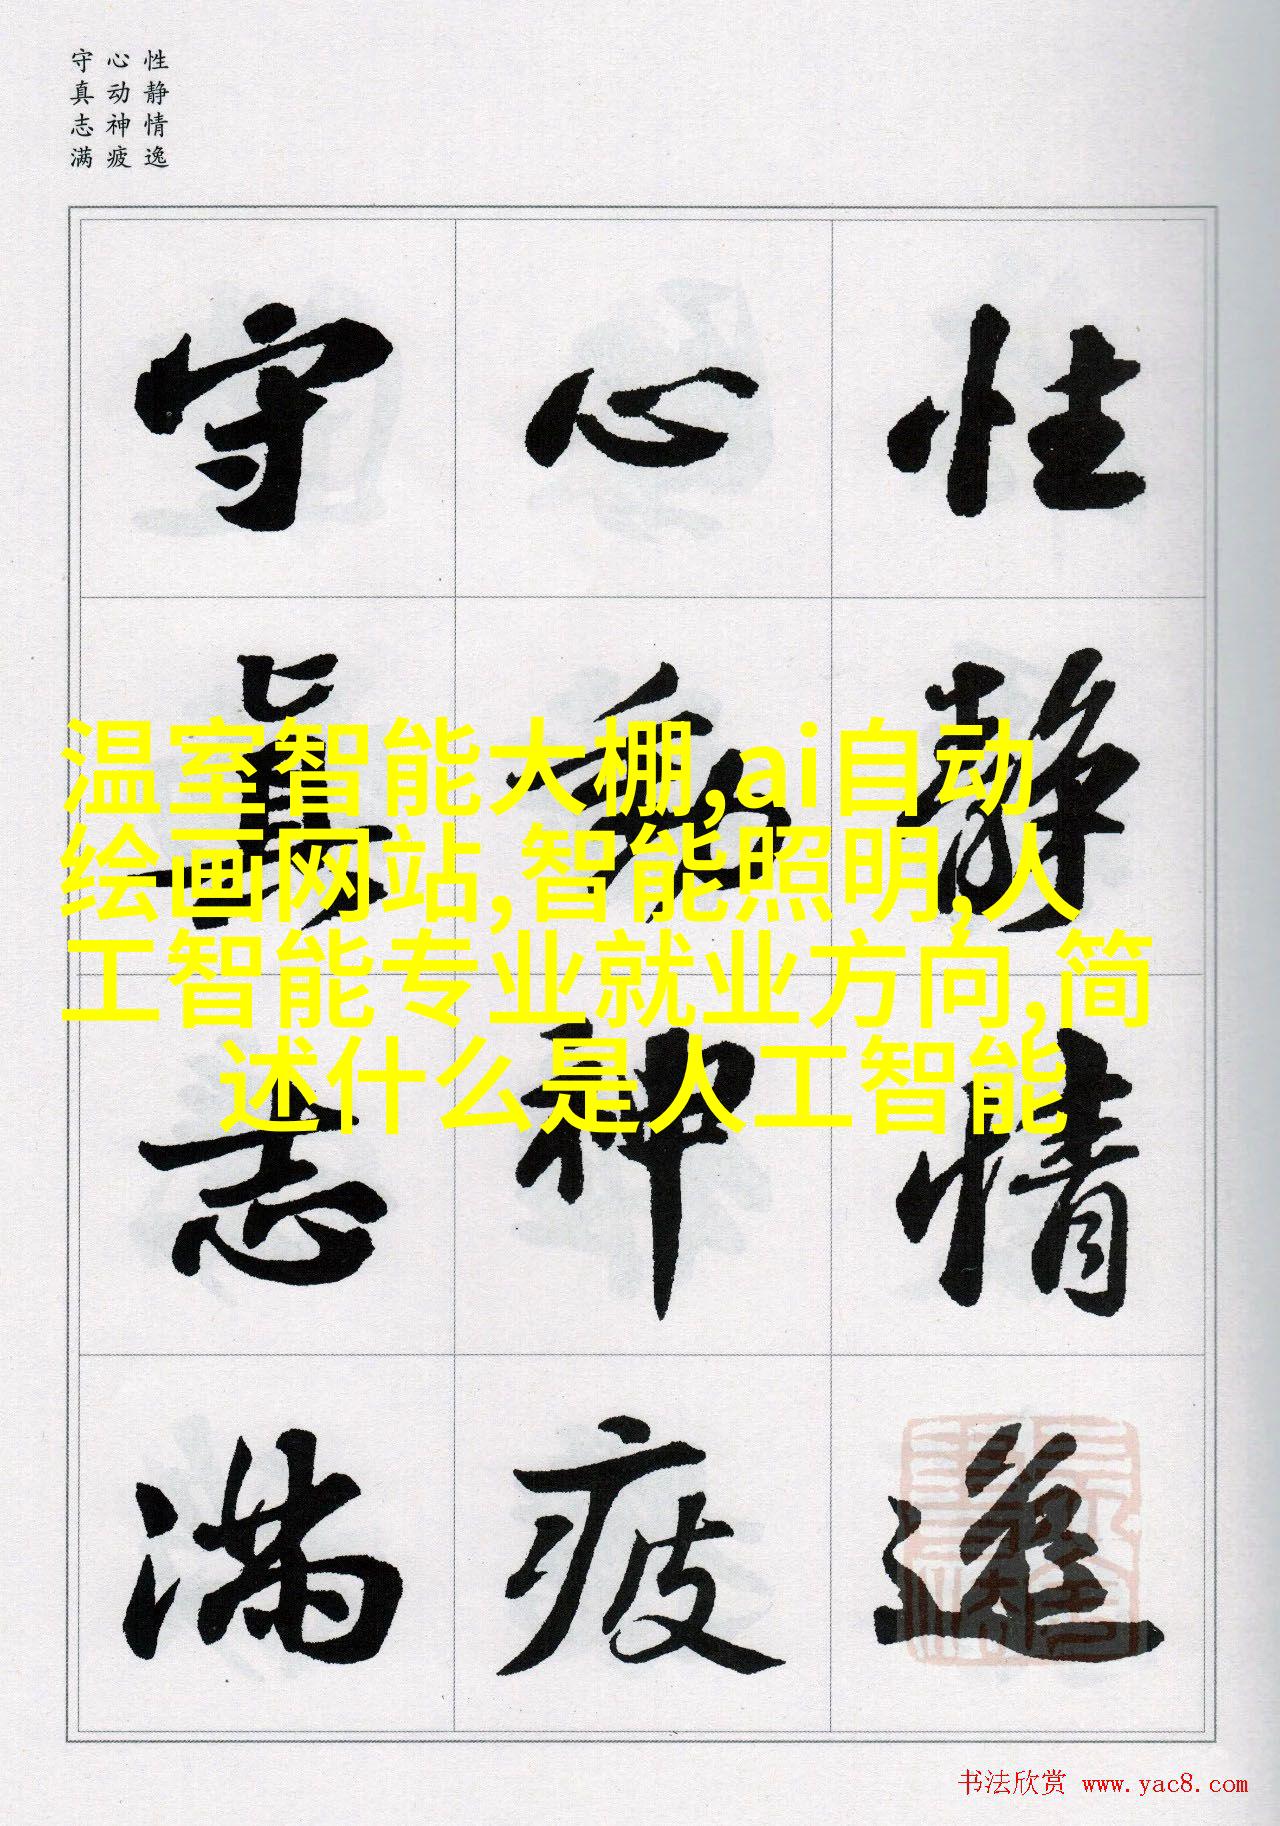 性静情逸
心动神疲
守真志满
性静情逸
心動神疲
守真志满
温室智能大棚,ai自动
绘画网站,智能照明,人
工智能专业就业方向,简
述什么是人工智能
书法欣赏 www.yac8.com